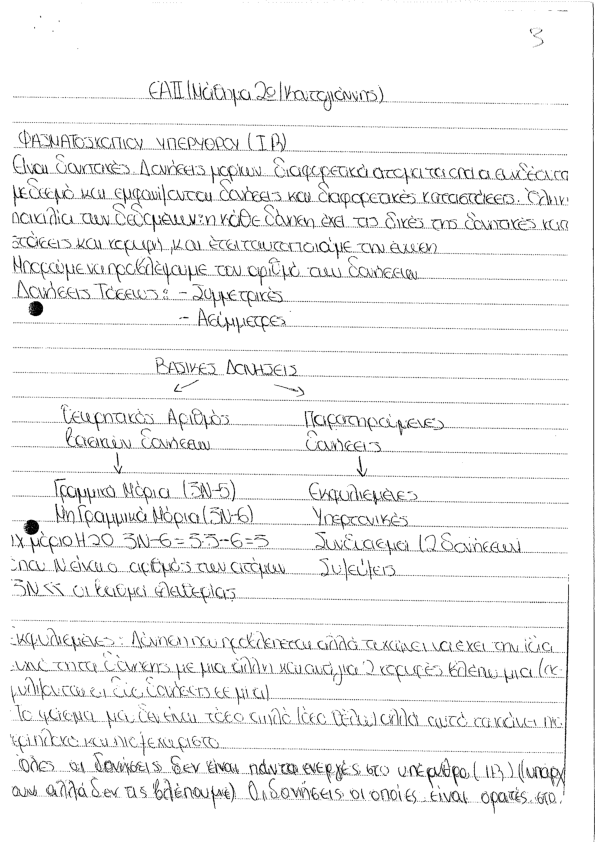 3
ΕΑΠ (Μάθημα 2ο)
ΦΑΣΜΑΤΟΣΚΟΠΙΟΥ ΥΠΕΡΥΘΡΟΥ (IR)
Είναι δονητικές. Δονήσεις μορίων διαφορετικά άτομα
με δεσμό και εμφανίζονται δονήσεις και διαφορετικές καταστάσεις.
ποικιλία των δεδομένων: η κάθε δόνηση έχει τις δικές της δονητικές κατα
στάσεις και κορυφή, και έτσι ταυτοποιούμε την ένωση
Μπορούμε να προβλέψουμε τον αριθμό των δονήσεων
Δονήσεις Τάσεως: - Συμμετρικές
- Ασύμμετρες
ΒΑΣΙΚΕΣ ΔΟΝΗΣΕΙΣ
Θεωρητικός Αριθμός Παρατηρούμενες
βασικών δονήσεων δονήσεις
Γραμμικά Μόρια (3Ν-5) Εκφυλισμένες
Μη Γραμμικά Μόρια (3Ν-6) Υπερτονικές
πχ μόριο Η2Ο 3Ν-6=3·3-6=3 Συνδιασμοί (2 δονήσεων
όπου Ν είναι ο αριθμός των ατόμων Συζεύξεις
3Ν << οι βαθμοί ελευθερίας
Εκφυλισμένες: Δόνηση που προβλέπεται αλλά τυχαίνει να έχει την ίδια
συχνότητα δόνησης με μια άλλη και αντί για 2 κορυφές βλέπω μια (εκ
φυλίζονται οι δύο δονήσεις σε μια)
Το φάσμα μας δεν είναι τόσο απλό (όσο θέλω) αλλά αυτό το κάνει πιο
περίπλοκο και πιο ξεχωριστό
Όλες οι δονήσεις δεν είναι πάντα ενεργές στο υπέρυθρο (IR) (υπάρχ
ουν αλλά δεν τις βλέπουμε) Οι δονήσεις οι οποίες είναι ορατές στο